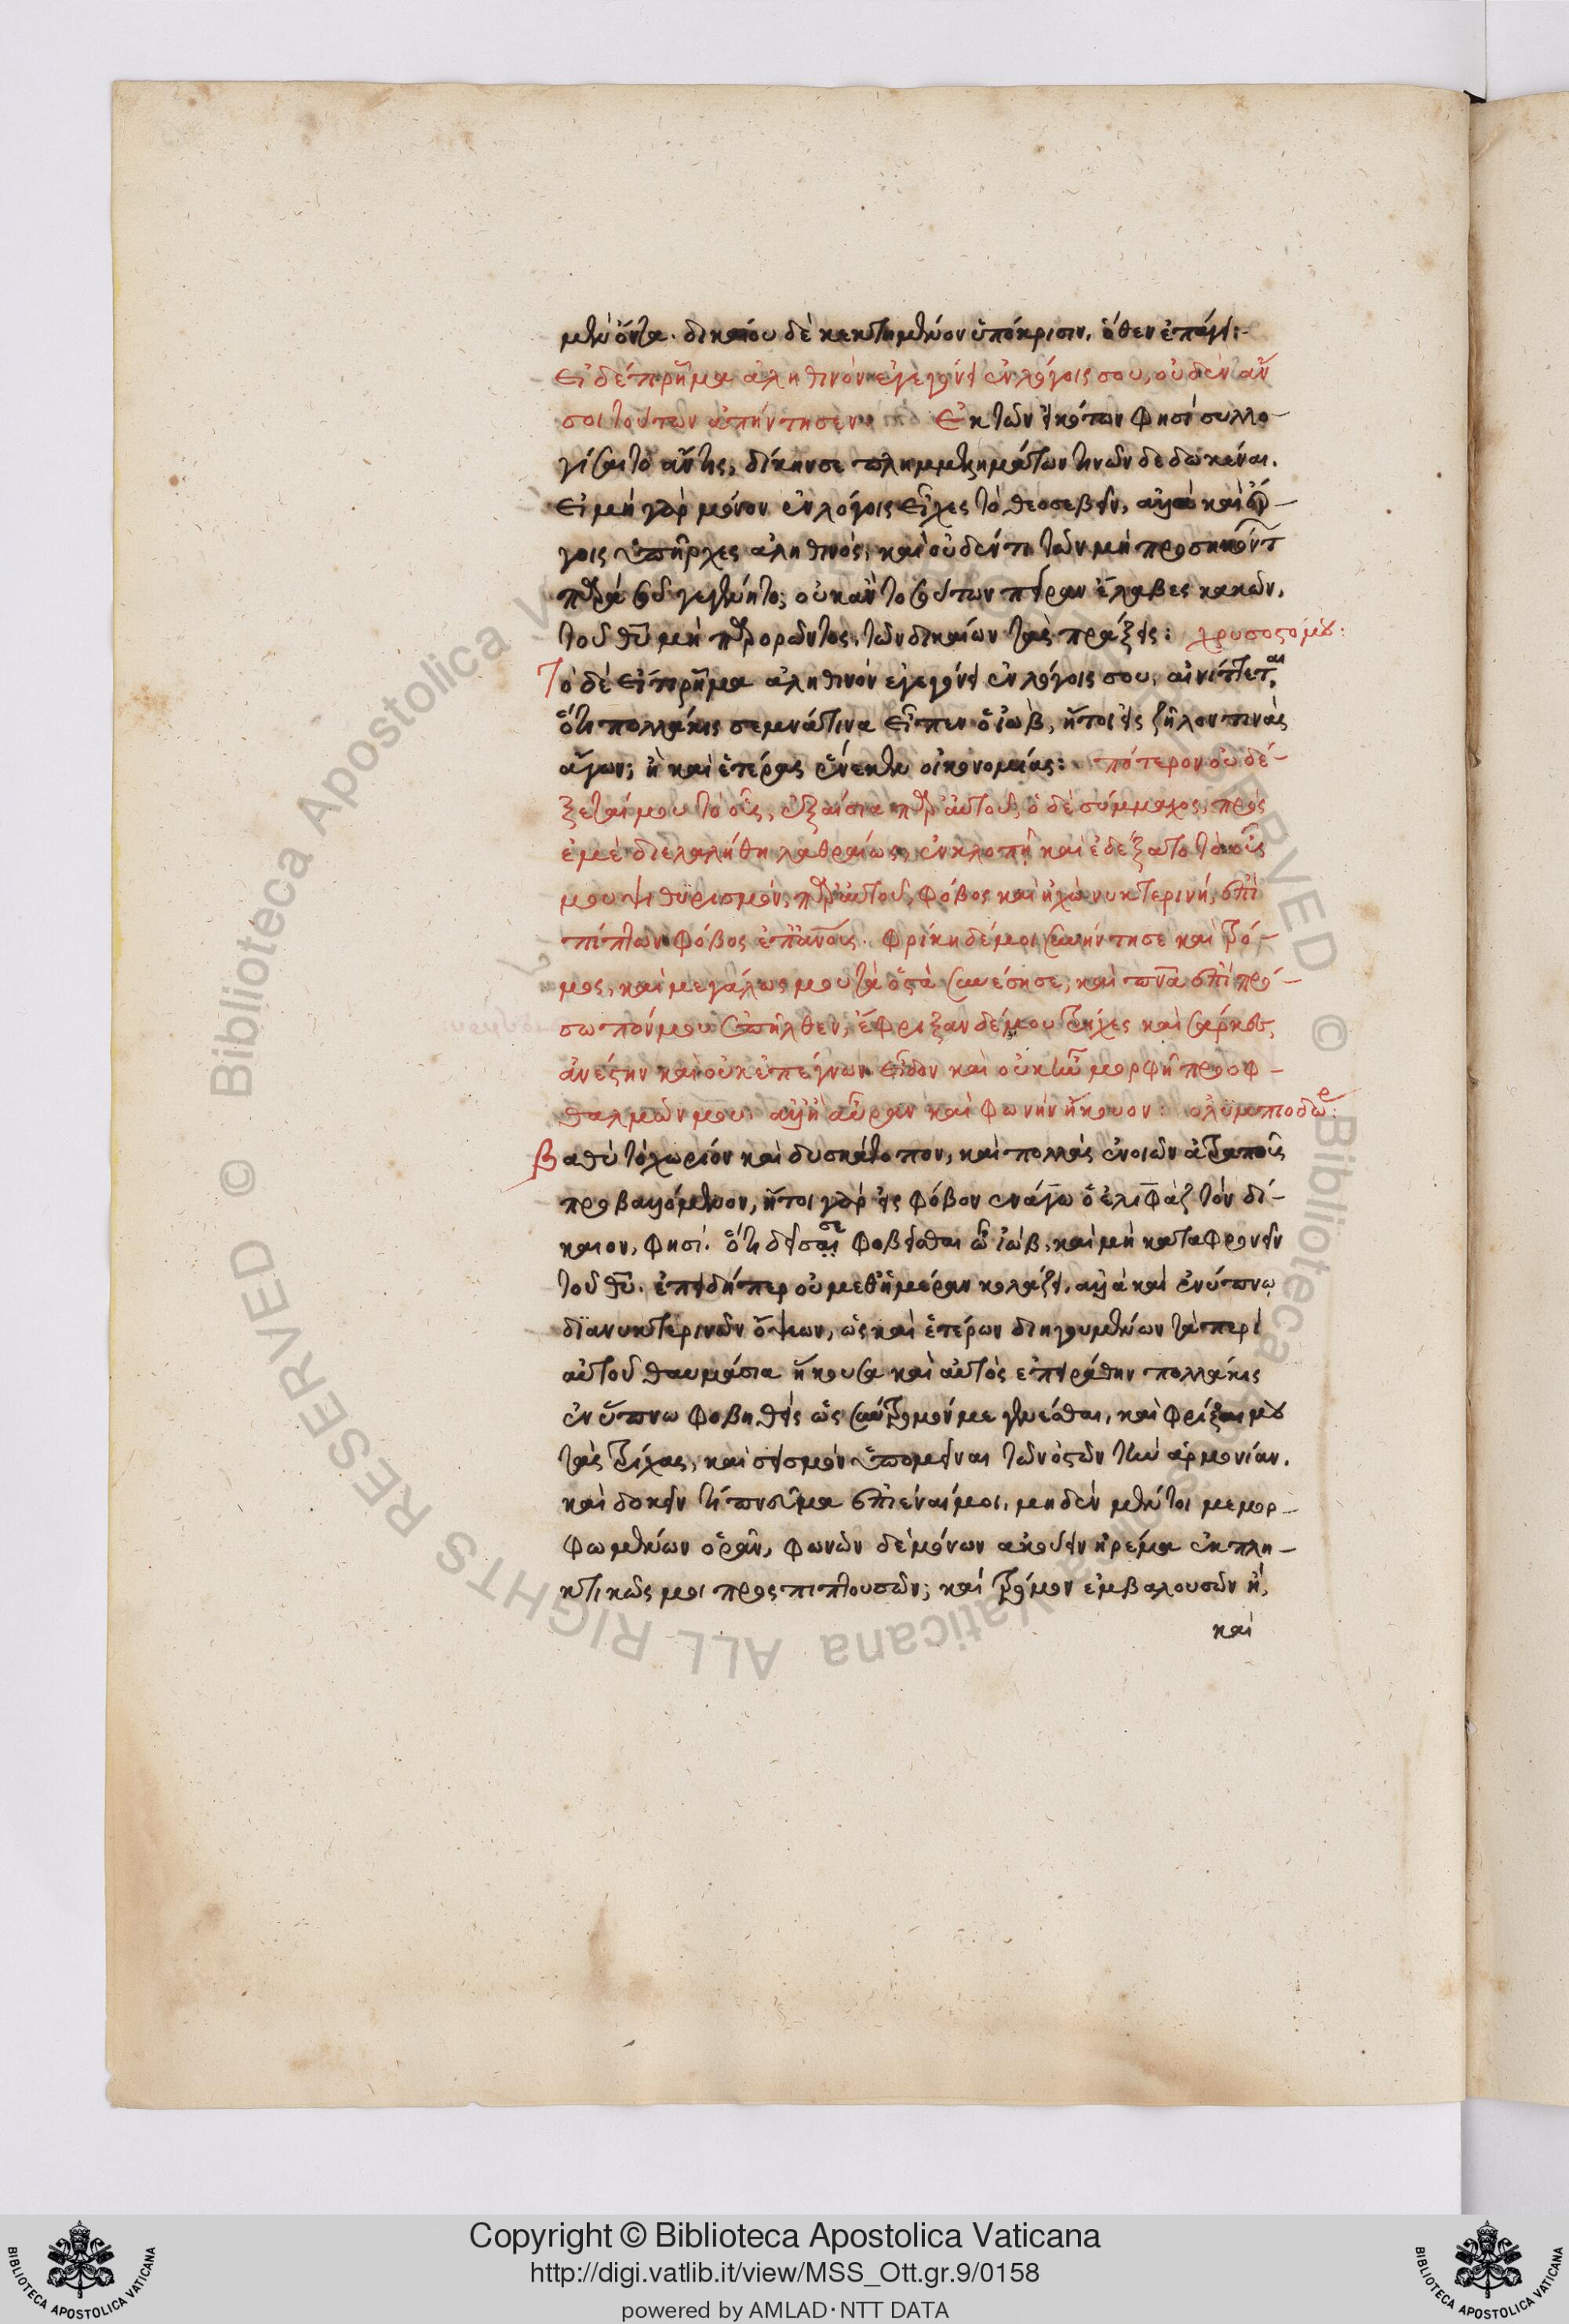 μὲν ὄντα. δικαίου δὲ κεκτημένον ὑπόκρισιν. ὅθεν ἐπάγει:-
Εἰ δέ τι ῥῆμα ἀληθινὸν ἐγεγόνει ἐν λόγοις σου, οὐδὲν ἂν
σοι τούτων ἀπήντησεν: Ἐκ τῶν εἰκότων φησὶ συλλο-
γίσαιτο ἄν τις, δίκην σε πλημμελημάτων τινῶν δεδωκέναι.
Εἰ μὴ γὰρ μόνον ἐν λόγοις εἶχες τὸ θεοσεβεῖν, ἀλλὰ καὶ ἔρ-
γοις ὑπῆρχες ἀληθινός, καὶ οὐδέν τι τῶν μὴ προσηκόντ
παρὰ σοῦ γεγένητο, οὐκ ἂν τοσούτων πεῖραν ἔλαβες κακῶν,
τοῦ θῦ μὴ παρορῶντος, τῶν δικαίων τὰς πράξεις: χρυσοστόμου:
Τὸ δὲ εἴ τι ῥῆμα ἀληθινὸν ἐγεγόνει ἐν λόγοις σου, αἰνίττεται,
ὅτι πολλάκις σεμνά τινα εἶπεν ὁ ἰώβ, ἤτοι εἰς ζῆλον τινὰς
ἄγων; ἢ καὶ ἑτέρας ἕνεκεν οἰκονομίας: πότερον οὐ δέ-
ξεταί μου τὸ οὖς, ἐξαίσια παρ' αὐτοῦ; ὁ δὲ σύμμαχος, πρὸς
ἐμὲ διελαλήθη λαθραίως, ἐν κλοπῇ καὶ ἐδέξατο τὸ οὖς
μου ψιθυρισμόν, παρ' αὐτοῦ, φόβος καὶ ἠχὼ νυκτερινή, ἐπι
πίπτων φόβος ἐπ' ἀνους. φρίκη δέ μοι συνήντησε καὶ τρό-
μος, καὶ μεγάλως μου τὰ ὀστᾶ συνέσησε, καὶ πνα ἐπὶ πρό-
σωπόν μου ἐπῆλθεν, ἔφριξαν δέ μου τρίχες καὶ σάρκες,
ἀνέστην καὶ οὐκ ἐπέγνων εἶδον καὶ οὐκ ἦν μορφὴ πρὸ ὀφ-
θαλμῶν μου. ἀλλ' ἢ αὔραν καὶ φωνὴν ἤκουον: ὀλυμπιοδώρ:
Βαθὺ τὸ χωρίον καὶ δυσκάτοπον, καὶ πολλὰς ἐνοιῶν ἀτραποὺς
προβαλλόμενον, ἤτοι γὰρ εἰς φόβον ἐνάγων ὁ ἐλιφὰζ τὸν δί-
καιον, φησί. ὅτι δεῖ σε φοβεῖσθαι ὦ ἰώβ, καὶ μὴ καταφρονεῖν
τοῦ θῦ. ἐπειδήπερ οὐ μεθ' ἡμέραν κολάζει, ἀλλὰ καὶ ἐν ὕπνῳ
διανυκτερινῶν ὄψεων, ὡς καὶ ἑτέρων διηγουμένων τὰ περὶ
αὐτοῦ θαυμάσια ἤκουσα καὶ αὐτὸς ἐπειράθην πολλάκις
ἐν ὕπνω φοβηθεὶς ὡς σύντρομόν με γενέσθαι, καὶ φρίξαι μου
τὰς τρίχας, καὶ σεισμὸν ὑπομεῖναι τῶν ὀστῶν τὴν ἁρμονίαν.
καὶ δοκεῖν τί πνεῦμα ἐπιέναι μοι, μηδὲν μέντοι μεμορ-
φωμένων ὁρᾶν, φωνῶν δὲ μόνων ἀκούειν ἠρέμα ἐκπλη-
κτικῶς μοι προςπιπτουσῶν; καὶ τρόμον ἐμβαλουσῶν ἢ,
καὶ
Copyright © Biblioteca Apostolica Vaticana
http://digi.vatlib.it/view/MSS_Ott.gr.9/0158
powered by AMLAD·NTT DATA